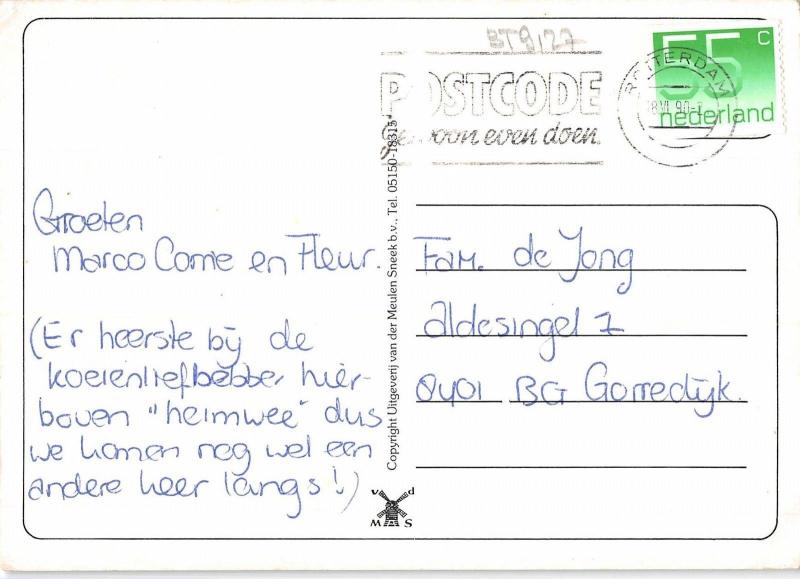 BT9127
POSTCODE
Gewoon even doen.
ROTTERDAM
55 c
nederland
Groeten
Marco Corrie en Fleur.
(Er heerste bij de
koeienliefhebber hier-
boven "heimwee" dus
we komen nog wel een
andere keer langs!)
Copyright Uitgeverij van der Meulen Sneek b.v., Tel. 05150-18315
Fam. de Jong
aldesingel 7
8401 BG Gorredijk.
v d
M S